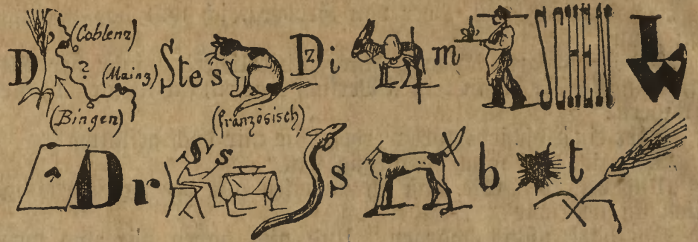 D (Coblenz) ? (Mainz) (Bingen) Stes (französisch) Dzi m SCHEN L W
Dr Ss s b t